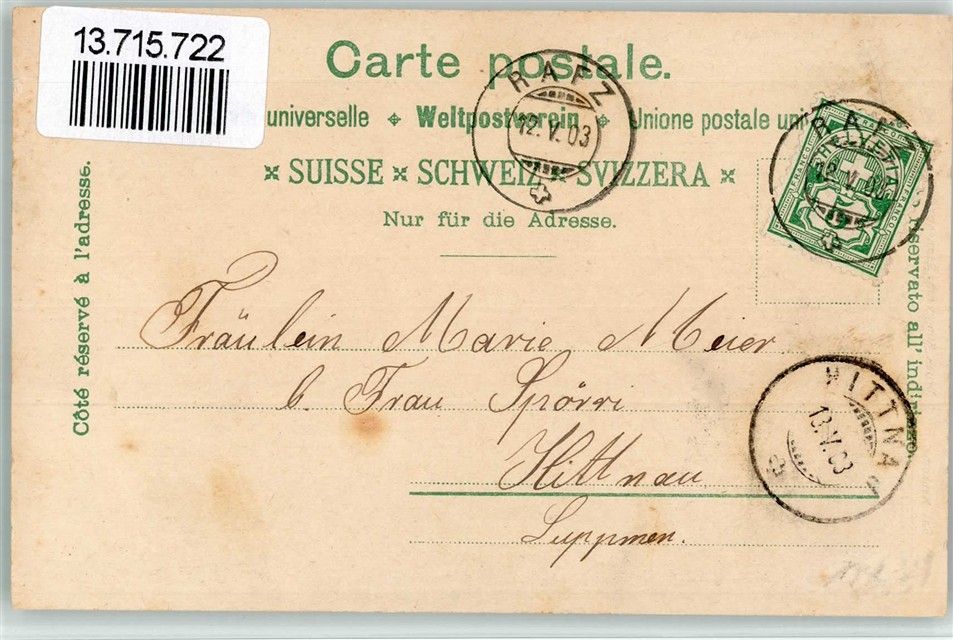 13.715.722
Carte postale.
universelle ⌖ Weltpostverein ⌖ Unione postale uni
SUISSE × SCHWEIZ × SVIZZERA
Nur für die Adresse.
Côté réservé à l'adresse.
riservato all' indirizzo.
RAFZ
12.V.03
RAFZ
12.V.03
HELVETIA
FRANCO
5
Fräulein Marie Meier
b. Frau Spörri
Hittnau
Luppmen.
HITTNAU
13.V.03